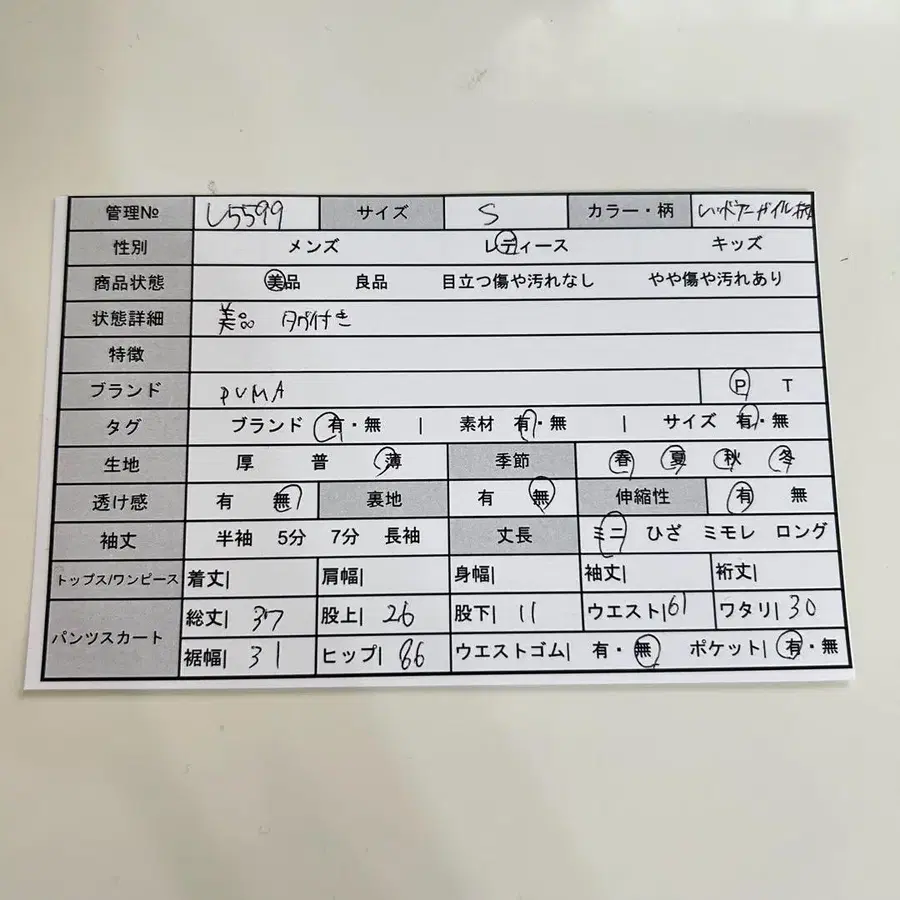 管理№ L5599 サイズ S カラー・柄
性別 メンズ レディース キッズ
商品状態 美品 良品 目立つ傷や汚れなし やや傷や汚れあり
状態詳細 美品 タグ付き
特徴
ブランド PUMA P T
タグ ブランド 有・無 | 素材 有・無 | サイズ 有・無
生地 厚 普 薄 季節 春 夏 秋 冬
透け感 有 無 裏地 有 無 伸縮性 有 無
袖丈 半袖 5分 7分 長袖 丈長 ミニ ひざ ミモレ ロング
トップス/ワンピース 着丈| 肩幅| 身幅| 袖丈| 裄丈|
パンツスカート 総丈| 37 股上| 26 股下| 11 ウエスト| 61 ワタリ| 30
裾幅| 31 ヒップ| 86 ウエストゴム| 有・無 ポケット| 有・無